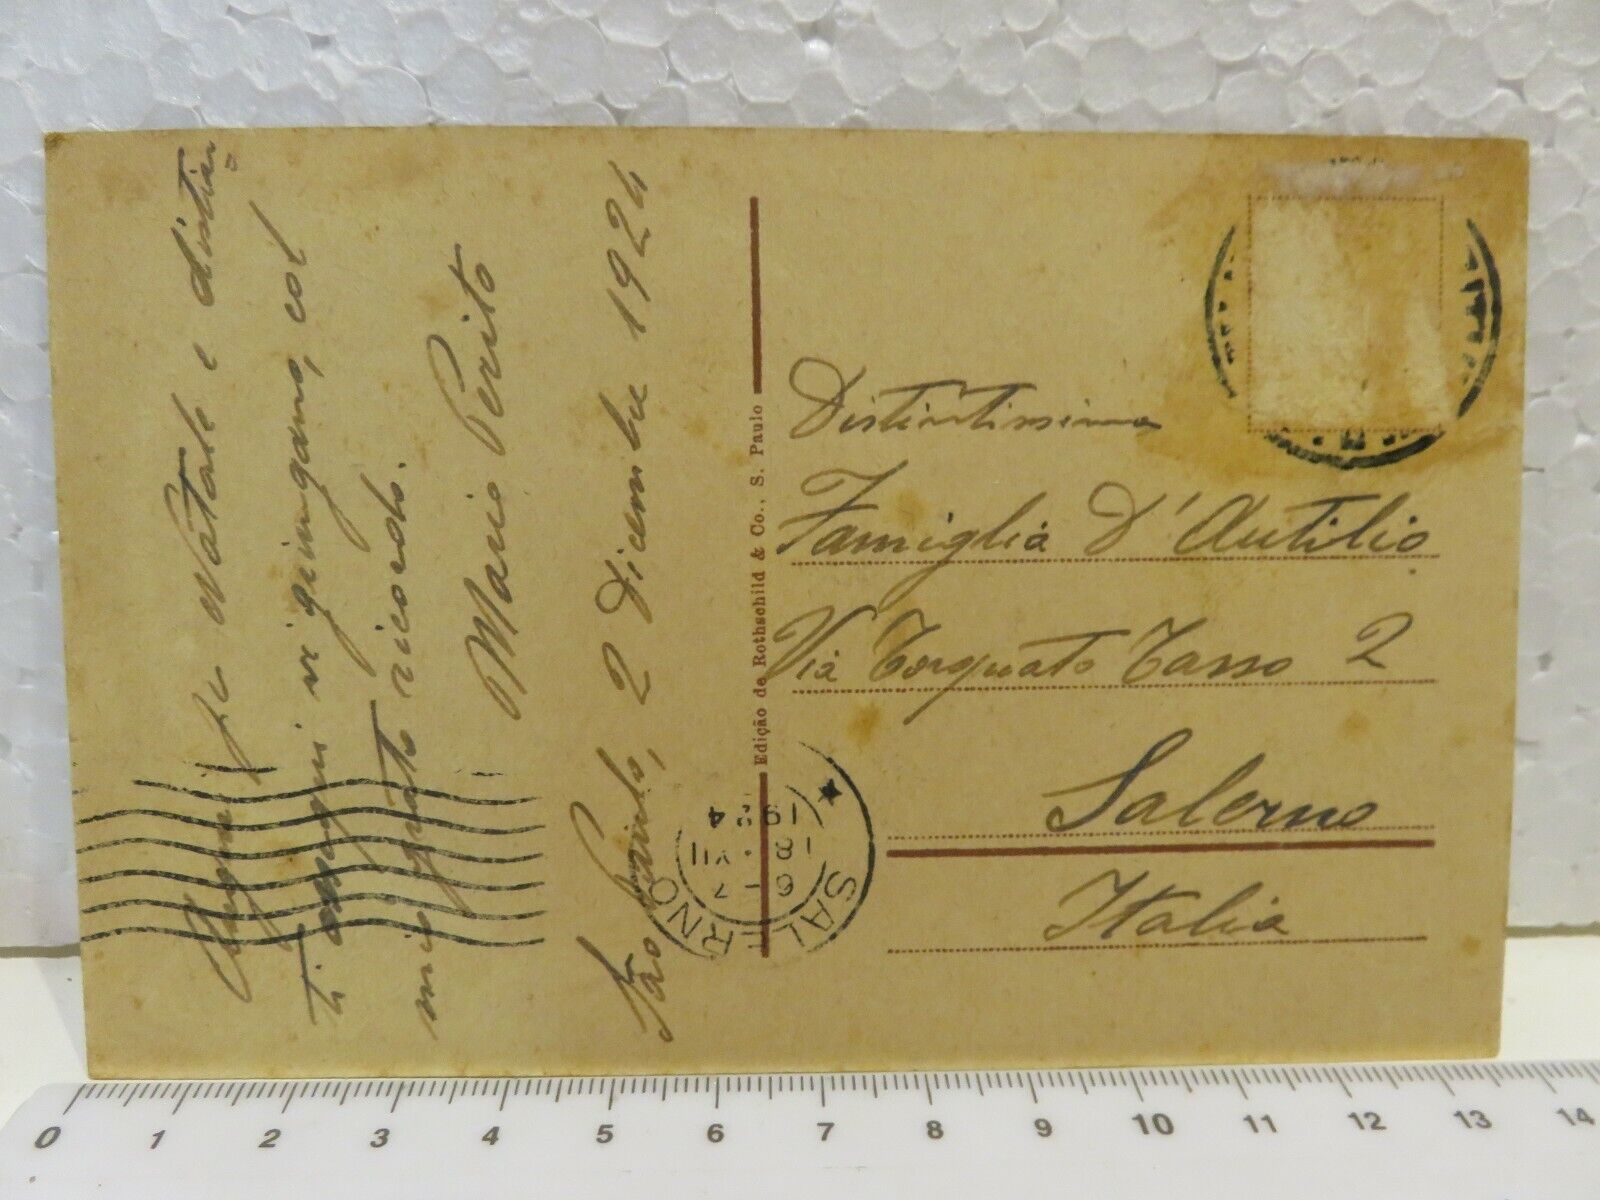 Auguri pel Natale e distin
ti ossequi vi giungano, col
mio grato ricordo.
Mario Perito
São Paulo, 2 Dicembre 1924
Edição de Rothschild & Co., S. Paulo
Distintissima
Famiglia D'Autilio
Via Torquato Tasso 2
Salerno
Italia
SALERNO
6-7
18 · XII
1924
0 1 2 3 4 5 6 7 8 9 10 11 12 13 14